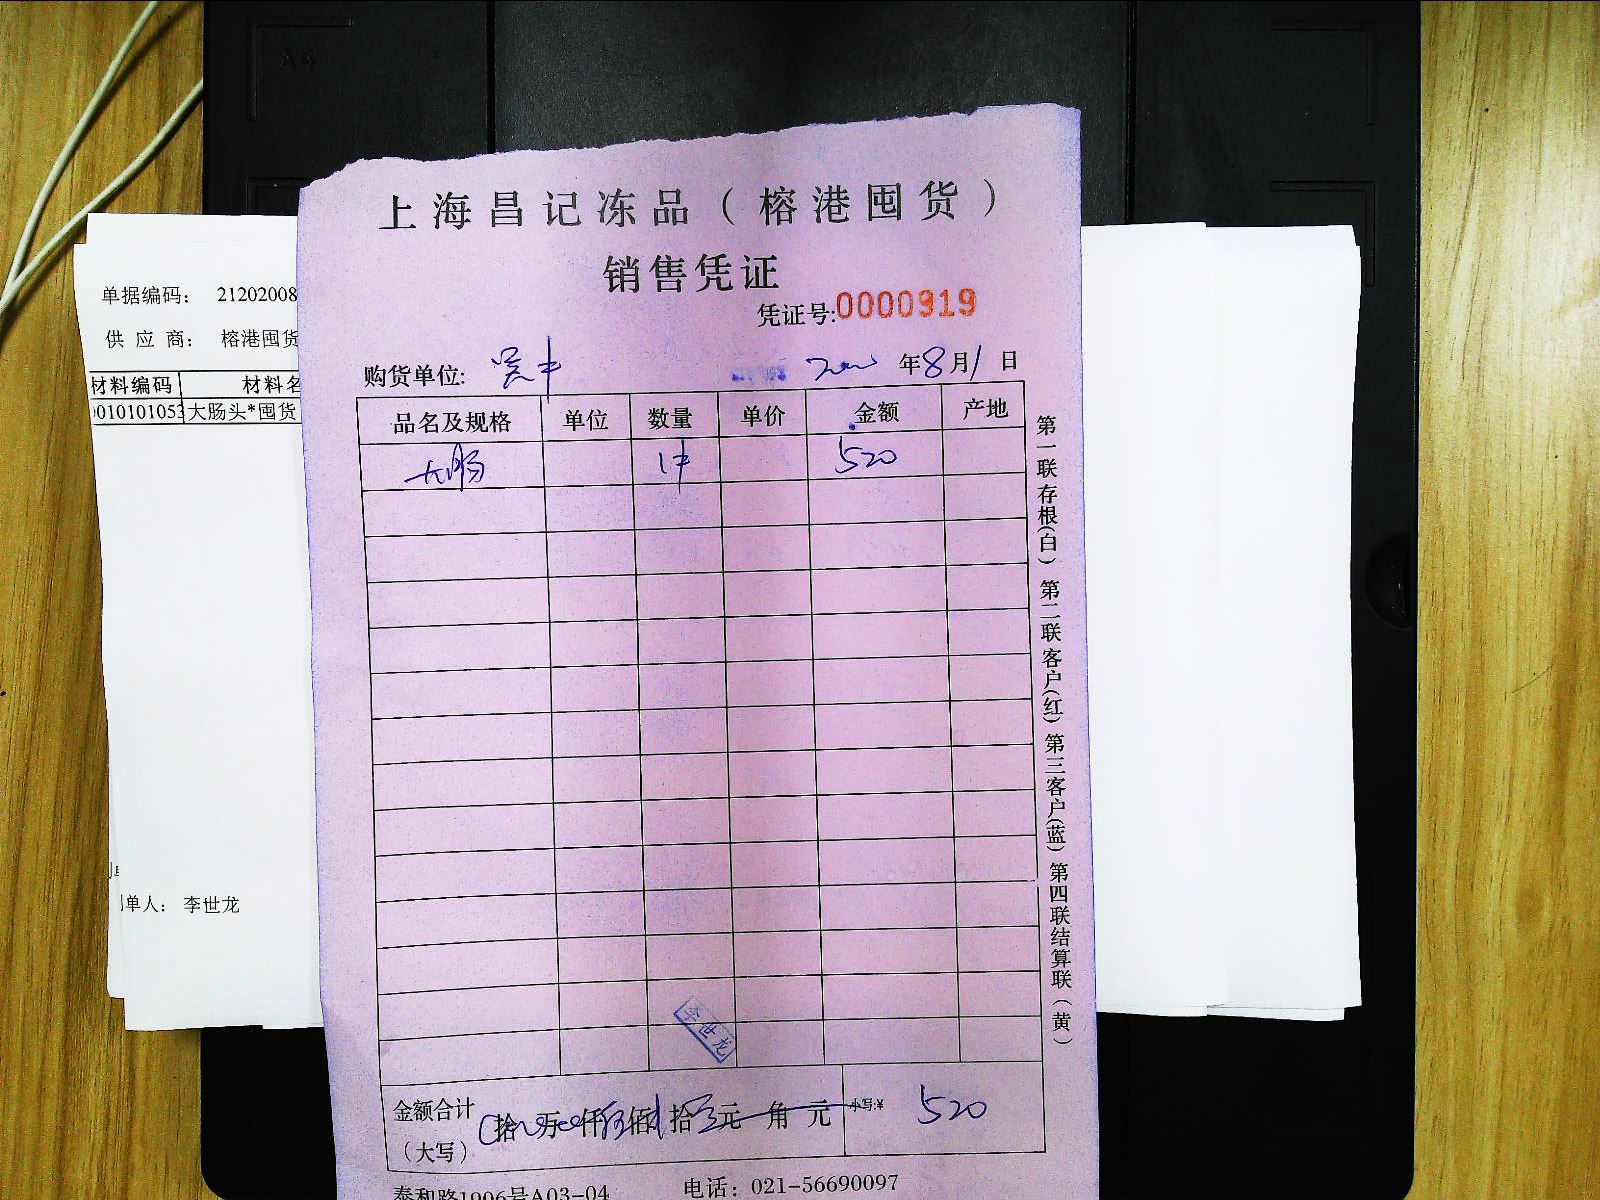 上海昌记冻品（榕港囤货）
销售凭证
凭证号:0000919
购货单位: 吴中 年8月1日
品名及规格 单位 数量 单价 金额 产地
大肠 1件 520
李世龙
金额合计（大写） 拾 万 仟 佰 拾 元 角 元 小写:¥ 520
泰和路1906号A03-04 电话：021-56690097
第一联存根(白) 第二联客户(红) 第三客户(蓝) 第四联结算联(黄)
单据编码： 21202008
供 应 商： 榕港囤货
材料编码 材料名
010101053 大肠头*囤货
单人： 李世龙